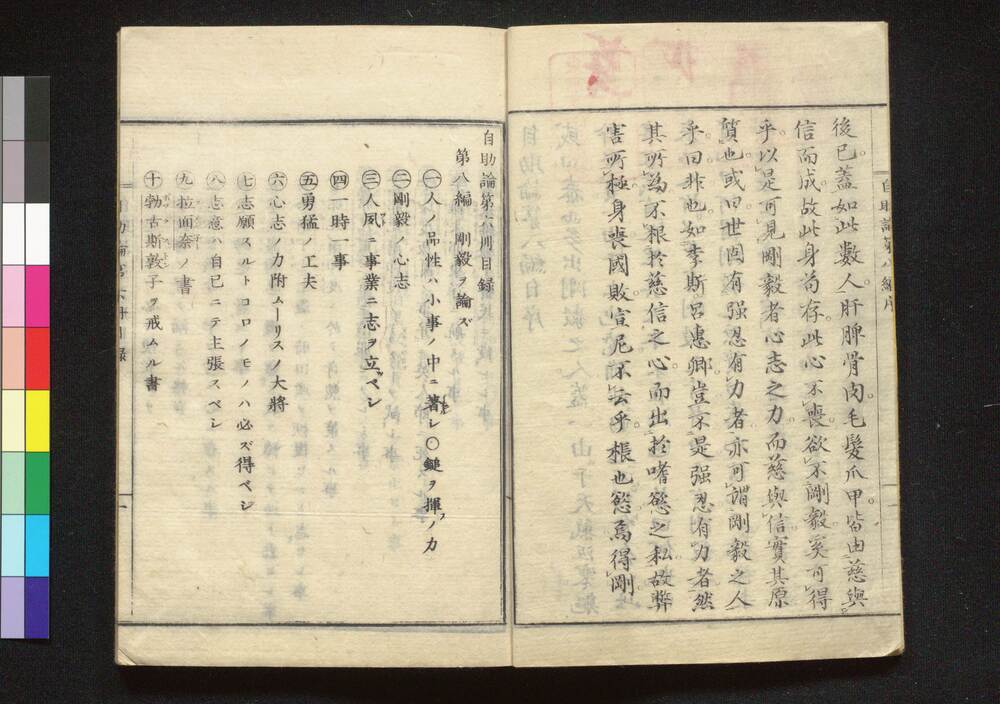 後已。蓋如此數人。肝脾骨肉毛髮爪甲。皆由慈與
信而成。故此身苟存。此心不喪。欲不剛毅。奚可得
乎。以是可見剛毅者心志之力。而慈與信實其原
質也。或曰。世固有强忍有力者。亦可謂剛毅之人
乎。曰。非也。如李斯呂惠卿。豈不是强忍有力者。然
其所為不根於慈信之心。而出於嗜慾之私。故弊
害所極。身喪國敗。宣尼不云乎。棖也慾。焉得剛
自助論第八編序
自助論第六冊目錄
第八編 剛毅ヲ論ズ
㊀人ノ品性ハ小事ノ中ニ著レ〇鎚ヲ揮フノ力
㊁剛毅ノ心志
㊂人夙ニ事業ニ志ヲ立ベシ
㊃一時一事
㊄勇猛ノ工夫
㊅心志ノ力附ムーリスノ大將
㊆志願スルトコロノモノハ必ズ得ベシ
㊇志意ハ自己ニテ主張スベシ
㊈拉面奈ノ書
㊉勃古斯敦子ヲ戒ムル書
自助論第六冊目錄
一